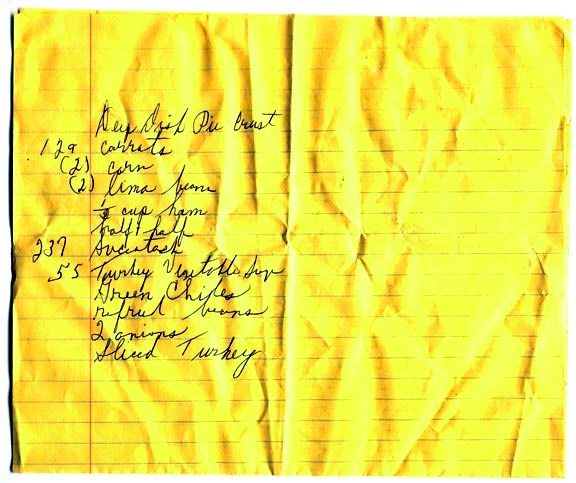 Deep Dish Pie Crust
129 carrots
(2) corn
(2) lima beans
½ cup ham
half & half
237 Sucatash
55 Turkey Vegetable Soup
Green Chiles
refried beans
2 onions
Sliced Turkey